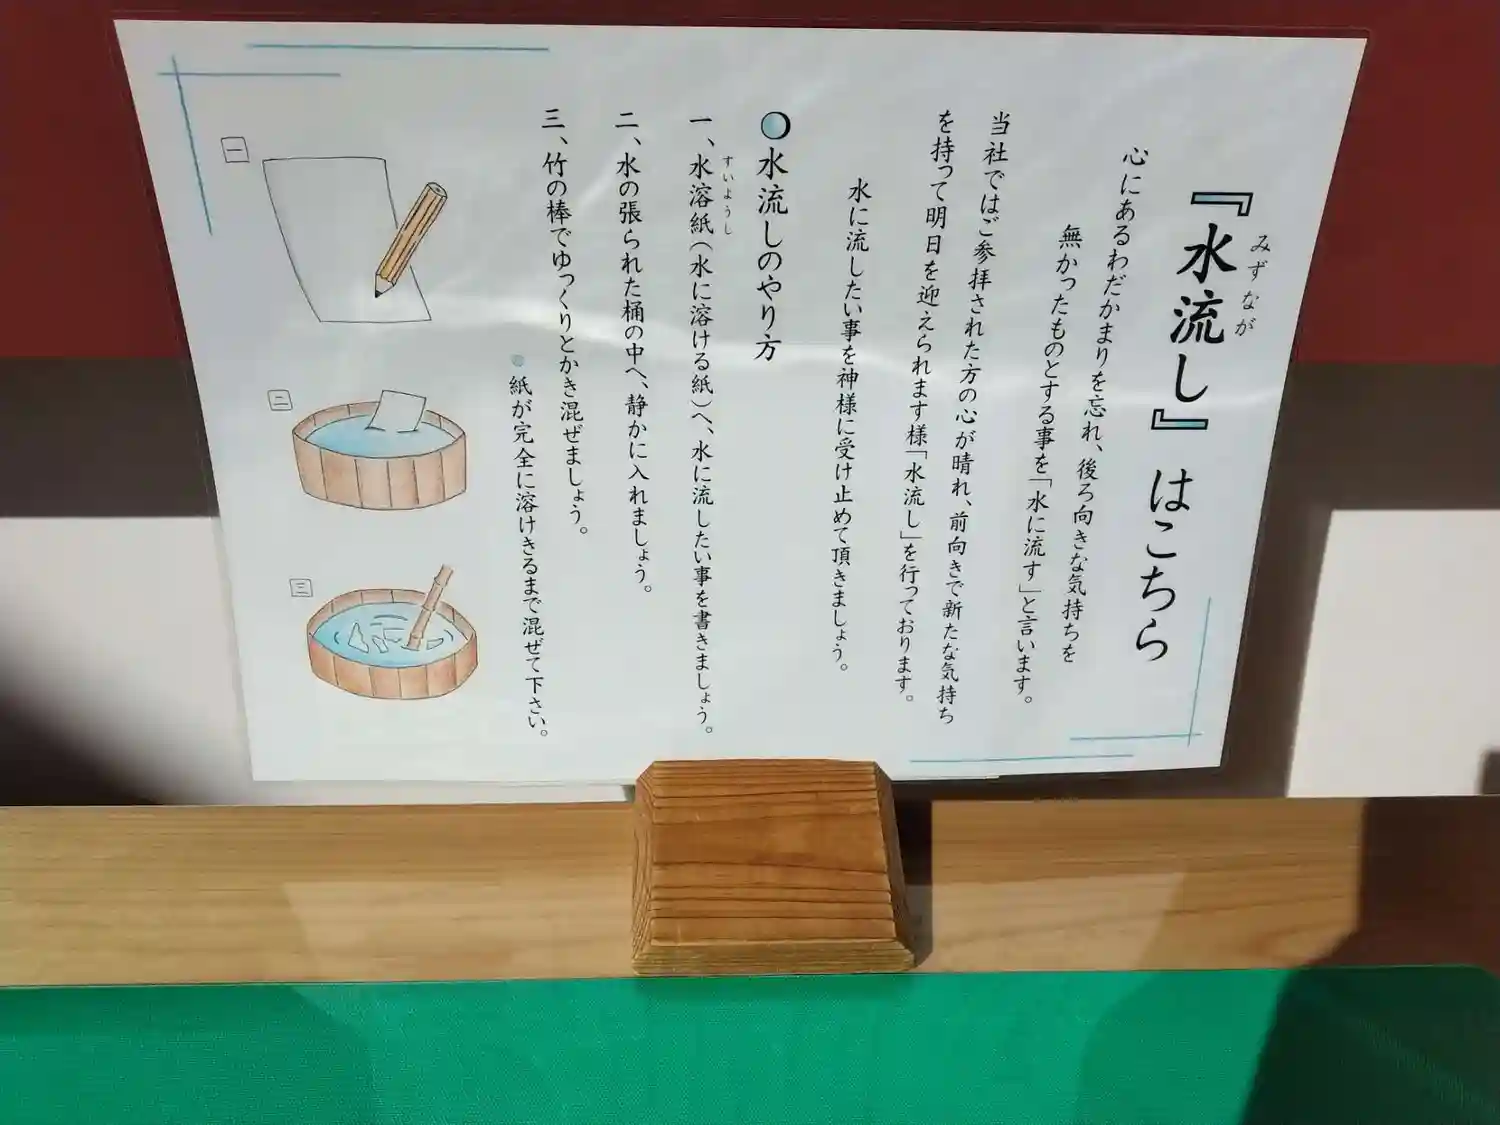 『水流し』はこちら
みずなが
心にあるわだかまりを忘れ、後ろ向きな気持ちを
無かったものとする事を「水に流す」と言います。
当社ではご参拝された方の心が晴れ、前向きで新たな気持ち
を持って明日を迎えられます様「水流し」を行っております。
水に流したい事を神様に受け止めて頂きましょう。
水流しのやり方
一、水溶紙(水に溶ける紙)へ、水に流したい事を書きましょう。
すいようし
二、水の張られた桶の中へ、静かに入れましょう。
三、竹の棒でゆっくりとかき混ぜましょう。
紙が完全に溶けきるまで混ぜて下さい。
一
二
三